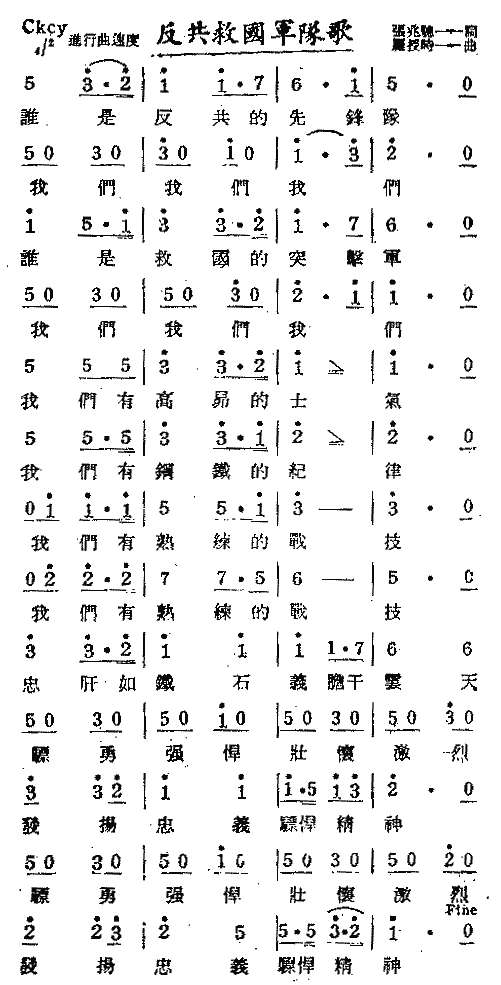 Ckcy 4/2 進行曲速度 反共救國軍隊歌 張兆聰——詞
羅授時——曲
5 3·2 | 1 1·7 | 6 · 1 | 5 · 0
誰是反共的先鋒隊
50 30 | 30 10 | 1 · 3 | 2 · 0
我們我們我們
1 5·1 | 3 3·2 | 1 · 7 | 6 · 0
誰是救國的突擊軍
50 30 | 50 30 | 2 · 1 | 1 · 0
我們我們我們
5 5 5 | 3 3·2 | 1 > | 1 · 0
我們有高昂的士氣
5 5·5 | 3 3·1 | 2 > | 2 · 0
我們有鋼鐵的紀律
01 1·1 | 5 5·1 | 3 — | 3 · 0
我們有熟練的戰技
02 2·2 | 7 7·5 | 6 — | 5 · 0
我們有熟練的戰技
3 3·2 | 1 1 | 1 1·7 | 6 6
忠肝如鐵石義膽干雲天
50 30 | 50 10 | 50 30 | 50 30
驃勇强悍壯懷激烈
3 32 | 1 1 | 1·5 13 | 2 · 0
發揚忠義驃悍精神
50 30 | 50 10 | 50 30 | 50 20
驃勇强悍壯懷激烈
Fine
2 23 | 2 5 | 5·5 3·2 | 1 · 0
發揚忠義驃悍精神